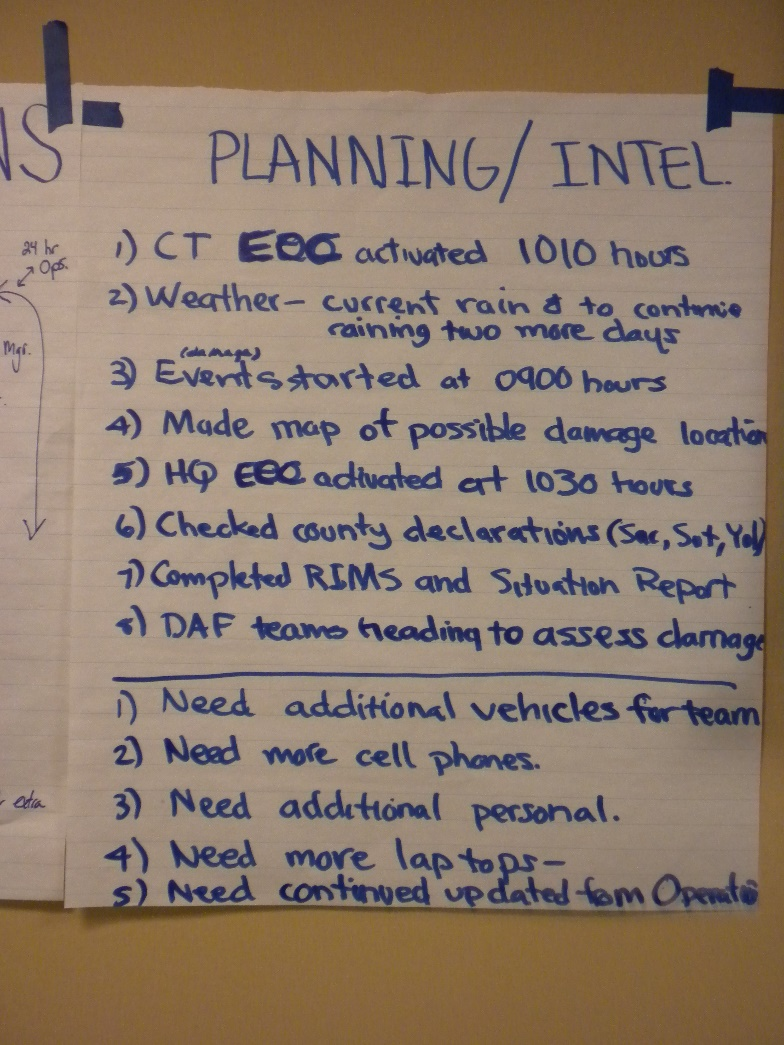 NS
24 hr
Ops.
Mgr.
extra
PLANNING/ INTEL.
1) CT EOC activated 1010 hours
2) Weather- current rain & to continue
raining two more days
(damage)
3) Events started at 0900 hours
4) Made map of possible damage location
5) HQ EOC activated at 1030 hours
6) Checked county declarations (Sac, Sut, Yol)
7) Completed RIMS and Situation Report
8) DAF teams heading to assess damage
1) Need additional vehicles for team
2) Need more cell phones.
3) Need additional personal.
4) Need more laptops-
5) Need continued updated fom